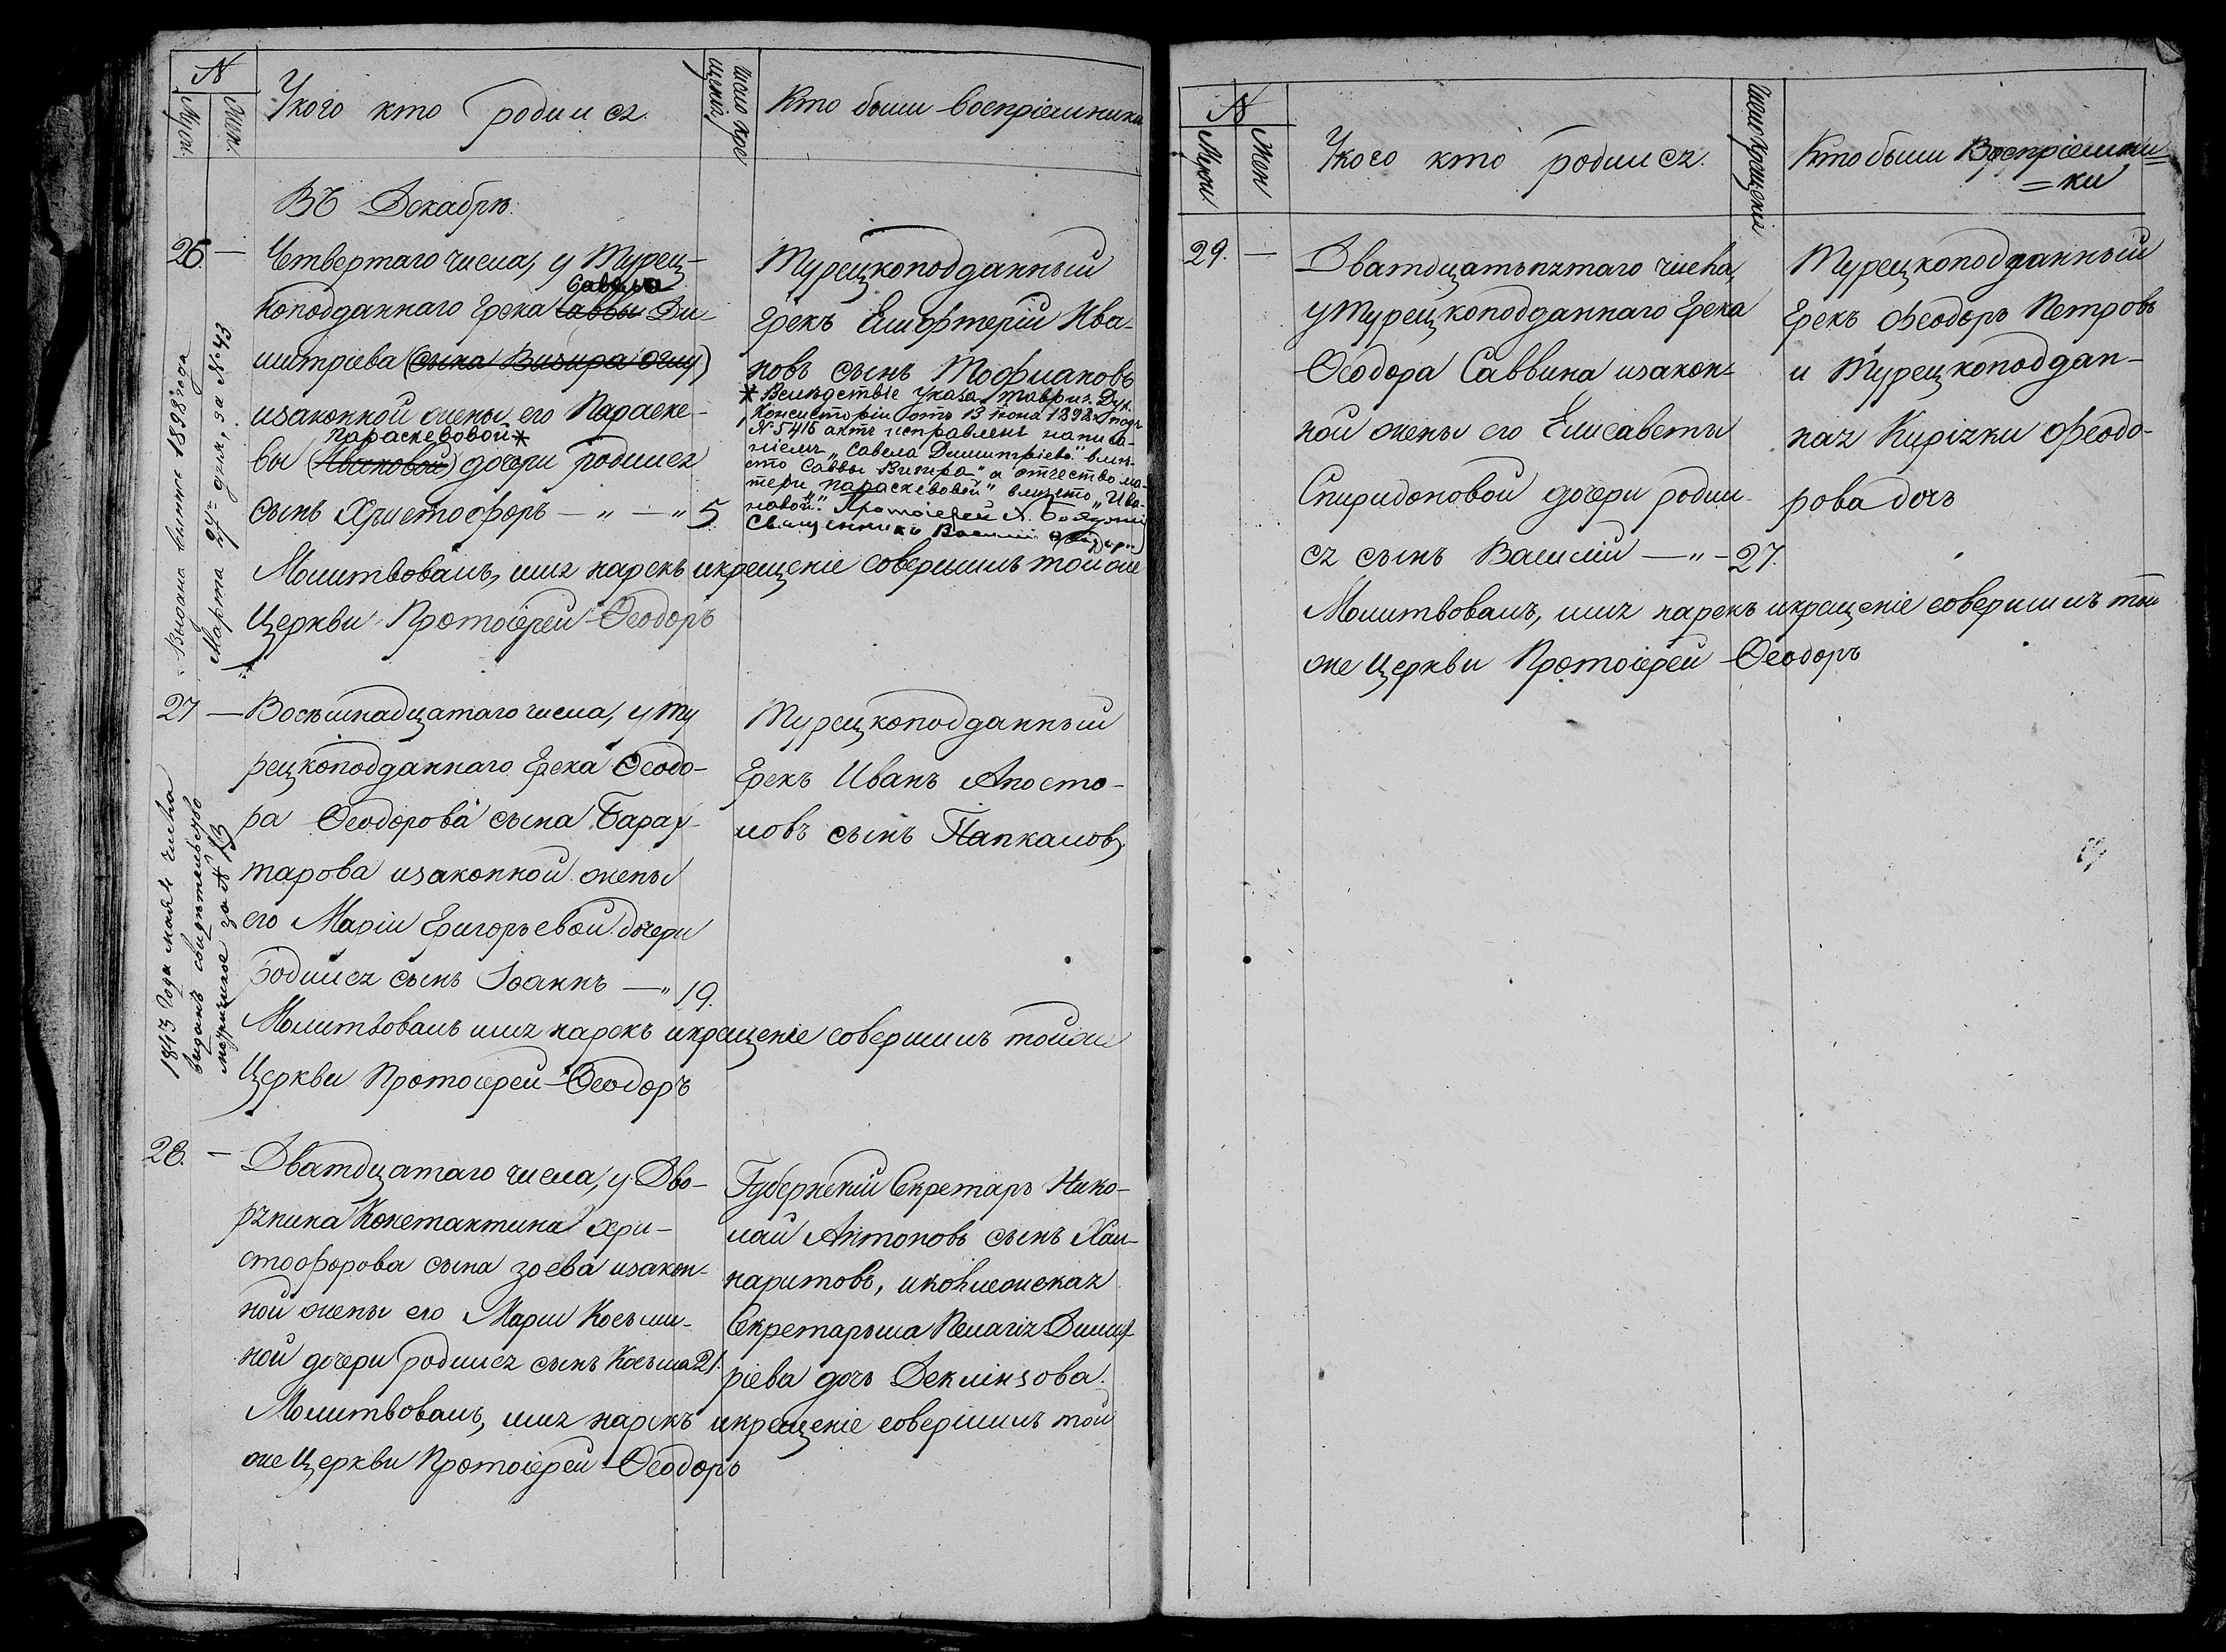 №
Муж.
Жен.
У кого кто родился.
Число кре
щенія
Кто были воспріемники
Въ Декабрѣ.
26. —
Четвертаго числа, у Турец-
Савелия
коподданнаго Грека Саввы Ди-
митріева (сына Визира оглу)
изаконной жены его Параске-
Параскевовой *
вы (Ивановой) дочери родился
сынъ Христофоръ — „ — „ 5.
Турецкоподданный
Грекъ Елифтерій Ива-
новъ сынъ Тофилановъ
* Вслѣдствіе указа Таврич. Дух.
Консисторіи отъ 13 Іюня 1898 г. подъ
№ 5415 актъ исправленъ написа-
ніемъ „Савела Димитріева" вмѣ-
сто Саввы Визира" а отчество ма-
тери „Параскевовой" вмѣсто „Ива-
новой". Протоіерей А.
Священникъ Василій
Молитвовалъ, имя нарекъ икрещеніе совершилъ той же
Церкви Протоіерей Ѳеодоръ
Выдана выпись 1898 года
Марта 24 дня, за № 43
27 —
Восьмнадцатаго числа, у Ту
рецкоподданнаго Грека Ѳеодо-
ра Ѳеодорова сына Барах-
тарова изаконной жены
его Маріи Григорьевой дочери
родился сынъ Іоаннъ — „ 19.
Турецкоподданный
Грекъ Иванъ Апосто-
ловъ сынъ Папкаловъ
Молитвовалъ имя нарекъ икрещеніе совершилъ тойже
Церкви Протоіерей Ѳеодоръ
1843 года мая числа
выданъ свидѣтельство
за № 13
28. —
Дватдцатаго числа, у Дво-
рянина Константина Хри-
стофорова сына Зоева изакон-
ной жены его Маріи Косьми-
ной дочери родился сынъ Косьма 21.
Губернскій Секретарь Нико-
лай Антоновъ сынъ Хал-
наритовъ, иколлежская
Секретарьша Пелагія Димит
ріева дочь Деклінзова.
Молитвовалъ, имя нарекъ икрещеніе совершилъ той
же Церкви Протоіерей Ѳеодоръ
№
Мужи
Жен
У кого кто родился.
Число крещенія
Кто были Воспріемни=
=ки
29. —
Дватдцатьпятаго числа,
у Турецкоподданнаго Грека
Ѳеодора Саввина изакон-
ной жены его Елисаветы
Спиридоновой дочери родил-
ся сынъ Василій — „ - 27.
Турецкоподданный
Грекъ Феодоръ Петровъ
и Турецкоподдан-
ная Кирізки Феодо-
рова дочь
Молитвовалъ, имя нарекъ икрещеніе совершилъ той
же Церкви Протоіерей Ѳеодоръ